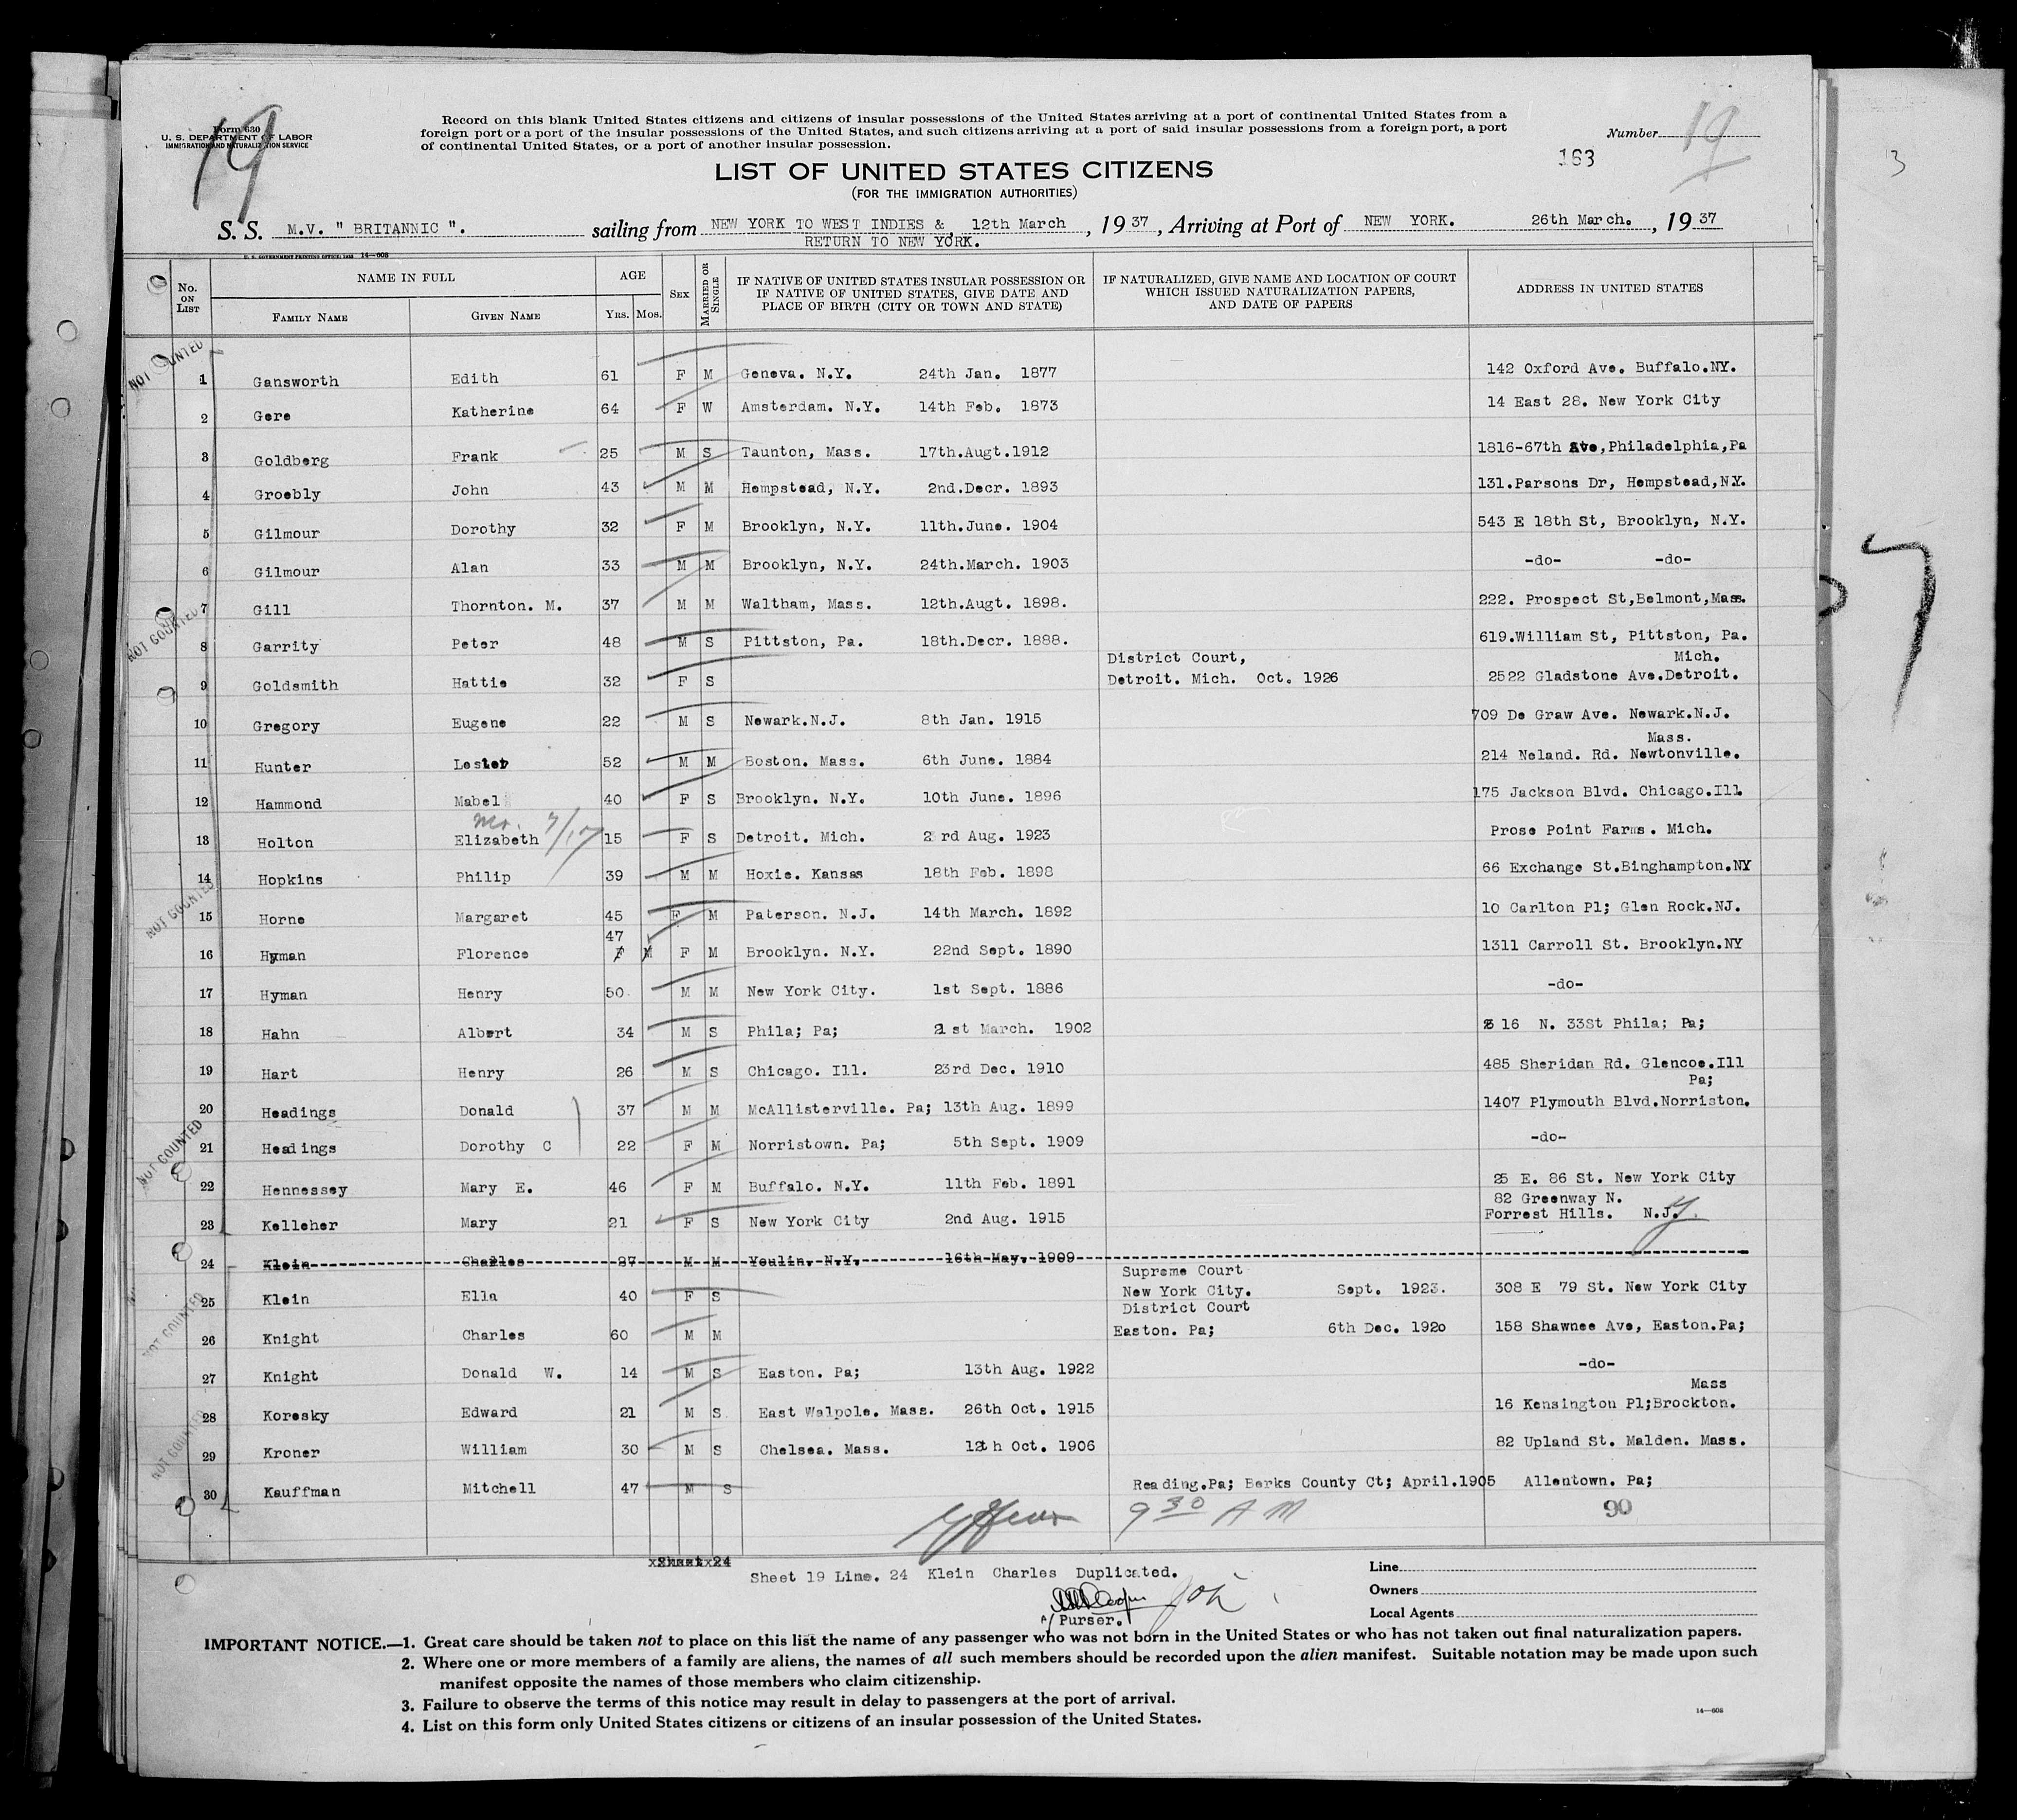 19
Form 630
U. S. DEPARTMENT OF LABOR
IMMIGRATION AND NATURALIZATION SERVICE
Record on this blank United States citizens and citizens of insular possessions of the United States arriving at a port of continental United States from a
foreign port or a port of the insular possessions of the United States, and such citizens arriving at a port of said insular possessions from a foreign port, a port
of continental United States, or a port of another insular possession.
Number 19
163
3
LIST OF UNITED STATES CITIZENS
(FOR THE IMMIGRATION AUTHORITIES)
S. S. M.V. " BRITANNIC ". sailing from NEW YORK TO WEST INDIES &, 12th March, 1937, Arriving at Port of NEW YORK. 26th March., 1937
RETURN TO NEW YORK.
U. S. GOVERNMENT PRINTING OFFICE: 1935 14—608
No. ON LIST NAME IN FULL AGE SEX MARRIED OR SINGLE IF NATIVE OF UNITED STATES INSULAR POSSESSION OR IF NATIVE OF UNITED STATES, GIVE DATE AND PLACE OF BIRTH (CITY OR TOWN AND STATE) IF NATURALIZED, GIVE NAME AND LOCATION OF COURT WHICH ISSUED NATURALIZATION PAPERS, AND DATE OF PAPERS ADDRESS IN UNITED STATES
FAMILY NAME GIVEN NAME YRS. MOS.
NOT COUNTED
1 Gansworth Edith 61 F M Geneva. N.Y. 24th Jan. 1877 142 Oxford Ave. Buffalo.NY.
2 Gere Katherine 64 F W Amsterdam. N.Y. 14th Feb. 1873 14 East 28. New York City
3 Goldberg Frank 25 M S Taunton, Mass. 17th.Augt.1912 1816-67th Ave,Philadelphia,Pa
4 Groebly John 43 M M Hempstead, N.Y. 2nd.Decr. 1893 131.Parsons Dr, Hempstead,N.Y.
5 Gilmour Dorothy 32 F M Brooklyn, N.Y. 11th.June. 1904 543 E 18th St, Brooklyn, N.Y.
6 Gilmour Alan 33 M M Brooklyn, N.Y. 24th.March. 1903 -do- -do-
7 Gill Thornton. M. 37 M M Waltham, Mass. 12th.Augt. 1898. 222. Prospect St,Belmont,Mass.
NOT COUNTED
8 Garrity Peter 48 M S Pittston, Pa. 18th.Decr. 1888. 619.William St, Pittston, Pa.
District Court, Mich.
9 Goldsmith Hattie 32 F S Detroit. Mich. Oct. 1926 2522 Gladstone Ave.Detroit.
10 Gregory Eugene 22 M S Newark.N.J. 8th Jan. 1915 709 De Graw Ave. Newark.N.J.
Mass.
11 Hunter Lester 52 M M Boston. Mass. 6th June. 1884 214 Neland. Rd. Newtonville.
12 Hammond Mabel 40 F S Brooklyn. N.Y. 10th June. 1896 175 Jackson Blvd. Chicago.Ill
13 Holton Elizabeth 15 F S Detroit. Mich. 2 rd Aug. 1923 Prose Point Farms. Mich.
14 Hopkins Philip 39 M M Hoxie. Kansas 18th Feb. 1898 66 Exchange St.Binghampton.NY
NOT COUNTED
15 Horne Margaret 45 F M Paterson. N.J. 14th March. 1892 10 Carlton Pl; Glen Rock.NJ.
47
16 Hyman Florence F M F M Brooklyn. N.Y. 22nd Sept. 1890 1311 Carroll St. Brooklyn.NY
17 Hyman Henry 50 M M New York City. 1st Sept. 1886 -do-
18 Hahn Albert 34 M S Phila; Pa; 21st March. 1902 16 N. 33St Phila; Pa;
19 Hart Henry 26 M S Chicago. Ill. 23rd Dec. 1910 485 Sheridan Rd. Glencoe.Ill
Pa;
20 Headings Donald 37 M M McAllisterville. Pa; 13th Aug. 1899 1407 Plymouth Blvd.Norriston.
21 Headings Dorothy C 22 F M Norristown. Pa; 5th Sept. 1909 -do-
NOT COUNTED
22 Hennessey Mary E. 46 F M Buffalo. N.Y. 11th Feb. 1891 25 E. 86 St. New York City
82 Greenway N.
23 Kelleher Mary 21 F S New York City 2nd Aug. 1915 Forrest Hills. N.J.
24 Klein Charles 27 M M Youlin, N.Y. 16th May, 1909
Supreme Court
25 Klein Ella 40 F S New York City. Sept. 1923. 308 E 79 St. New York City
NOT COUNTED
District Court
26 Knight Charles 60 M M Easton. Pa; 6th Dec. 1920 158 Shawnee Ave, Easton.Pa;
27 Knight Donald W. 14 M S Easton. Pa; 13th Aug. 1922 -do-
Mass
28 Koresky Edward 21 M S. East Walpole. Mass. 26th Oct. 1915 16 Kensington Pl;Brockton.
29 Kroner William 30 M S Chelsea. Mass. 12th Oct. 1906 82 Upland St. Malden. Mass.
NOT COUNTED
30 Kauffman Mitchell 47 M S Reading.Pa; Berks County Ct; April.1905 Allentown. Pa;
9 30 A M
90
Sheet 24
Sheet 19 Line. 24 Klein Charles Duplicated.
A/ Purser.
Line
Owners
Local Agents
IMPORTANT NOTICE.—1. Great care should be taken not to place on this list the name of any passenger who was not born in the United States or who has not taken out final naturalization papers.
2. Where one or more members of a family are aliens, the names of all such members should be recorded upon the alien manifest. Suitable notation may be made upon such
manifest opposite the names of those members who claim citizenship.
3. Failure to observe the terms of this notice may result in delay to passengers at the port of arrival.
4. List on this form only United States citizens or citizens of an insular possession of the United States.
14—608